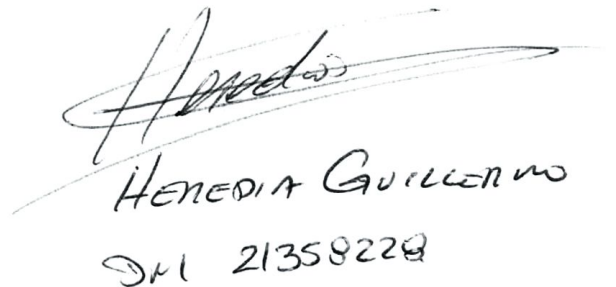 Heredia
HEREDIA GUILLERMO
DNI 21358228